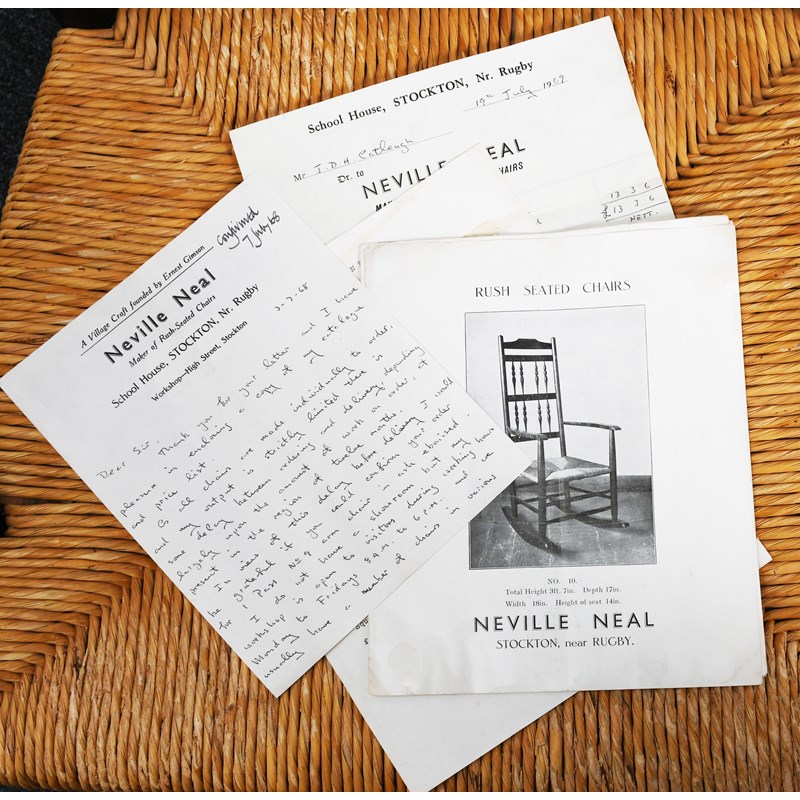 School House, STOCKTON, Nr. Rugby
19th July 1969
Mr J. D. H.
Dr. to
NEVILLE NEAL
CHAIRS
13 3 6
£ 13 3 6
NETT.
Confirmed
7 July 68
A Village Craft founded by Ernest Gimson
Neville Neal
Maker of Rush-Seated Chairs
School House, STOCKTON, Nr. Rugby
Workshop—High Street, Stockton
3-7-68
Dear Sir.
Thank you for your letter and I have
pleasure in enclosing a copy of my catalogue
and price list.
As all chairs are made individually to order,
and my output is strictly limited there is
some delay between ordering and delivery, depending
largely upon the amount of work on order, at
present in the region of twelve months.
In view of this delay before delivery I would
be grateful if you could confirm your order
for 1 Pass No 9 arm chair in ash ebonised.
I do not have a showroom but my
workshop is open to visitors during working hours
Monday to Fridays 8 A.M. to 6 P.M. and we
usually have a number of chairs in various
RUSH SEATED CHAIRS
NO. 10.
Total Height 3ft. 7in. Depth 17in.
Width 18in. Height of seat 14in.
NEVILLE NEAL
STOCKTON, near RUGBY.